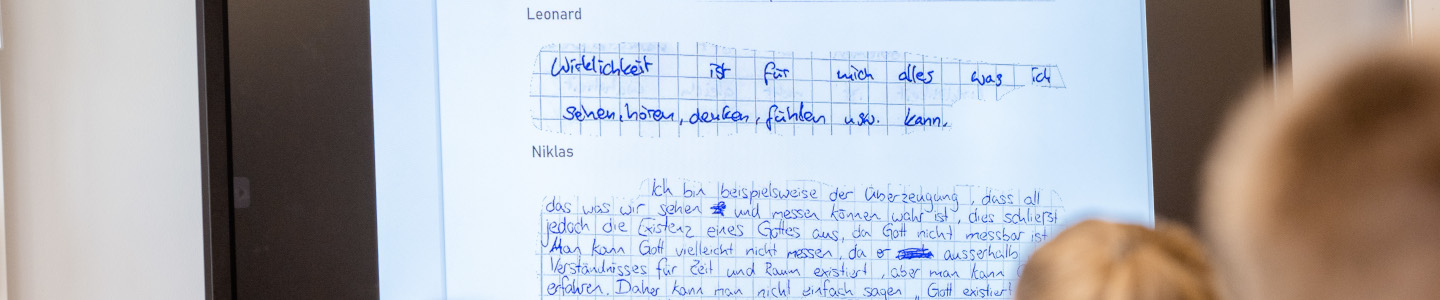 Leonard
Wirklichkeit ist für mich alles was ich
sehen, hören, denken, fühlen usw. kann.
Niklas
Ich bin beispielsweise der Überzeugung, dass all
das was wir sehen und messen können wahr ist, dies schließt
jedoch die Existenz eines Gottes aus, da Gott nicht messbar ist.
Man kann Gott vielleicht nicht messen, da er ausserhalb
Verständnisses für Zeit und Raum existiert, aber man kann
erfahren. Daher kann man nicht einfach sagen „Gott existiert